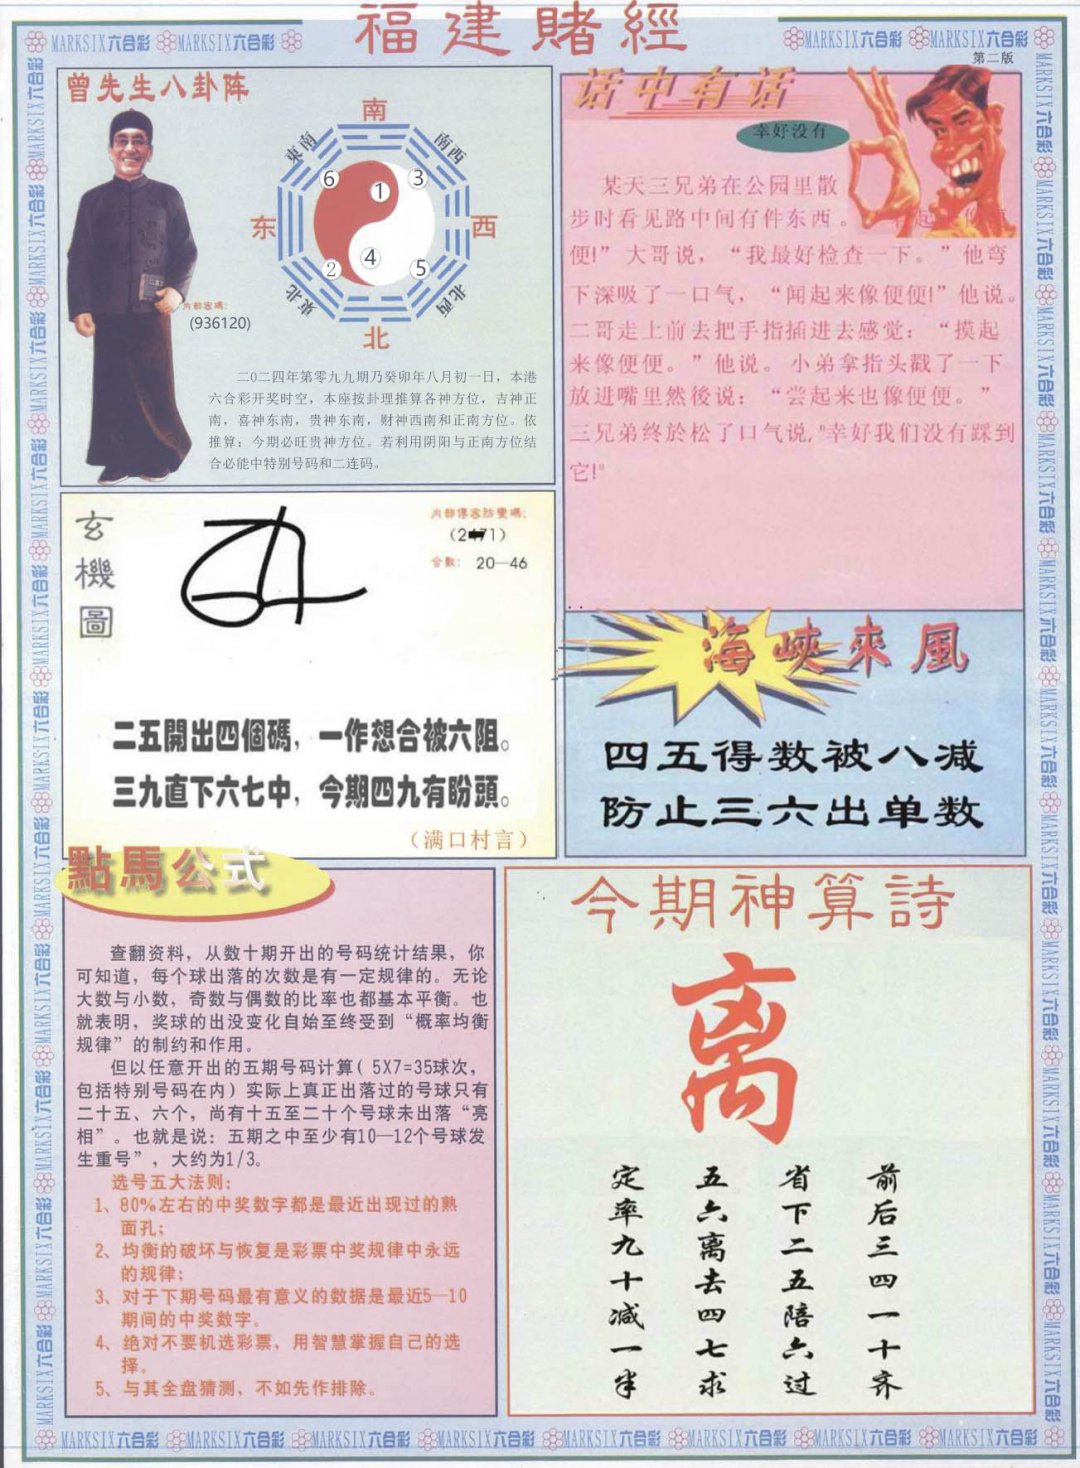 福建賭經
MARKSIX六合彩 MARKSIX六合彩
MARKSIX六合彩 MARKSIX六合彩
第二版
曾先生八卦阵
南
東南
南西
6
1
3
东
西
2
4
5
東北
北西
北
内部密碼:
(936120)
二0二四年第零九九期乃癸卯年八月初一日，本港
六合彩开奖时空，本座按卦理推算各神方位，吉神正
南，喜神东南，贵神东南，财神西南和正南方位。依
推算：今期必旺贵神方位。若利用阴阳与正南方位结
合必能中特别号码和二连码。
话中有话
幸好没有
某天三兄弟在公园里散
步时看见路中间有件东西。
便!” 大哥说，“我最好检查一下。”他弯
下深吸了一口气，“闻起来像便便!”他说。
二哥走上前去把手指插进去感觉：“摸起
来像便便。”他说。小弟拿指头戳了一下
放进嘴里然後说：“尝起来也像便便。”
三兄弟终於松了口气说,"幸好我们没有踩到
它!"
玄機圖
内部傳密防變碼:
合數: 20—46
二五開出四個碼，一作想合被六阻。
三九直下六七中，今期四九有盼頭。
（满口村言）
海峽來風
四五得数被八减
防止三六出单数
點馬公式
查翻资料，从数十期开出的号码统计结果，你
可知道，每个球出落的次数是有一定规律的。无论
大数与小数，奇数与偶数的比率也都基本平衡。也
就表明，奖球的出没变化自始至终受到“概率均衡
规律”的制约和作用。
但以任意开出的五期号码计算( 5X7=35球次，
包括特别号码在内）实际上真正出落过的号球只有
二十五、六个，尚有十五至二十个号球未出落“亮
相”。也就是说：五期之中至少有10—12个号球发
生重号”，大约为1/3。
选号五大法则:
1、80%左右的中奖数字都是最近出现过的熟
面孔；
2、均衡的破坏与恢复是彩票中奖规律中永远
的规律；
3、对于下期号码最有意义的数据是最近5—10
期间的中奖数字。
4、绝对不要机选彩票，用智慧掌握自己的选
择。
5、与其全盘猜测，不如先作排除。
今期神算詩
离
前后三四一十齐
省下二五陪六过
五六离去四七求
定率九十减一半
MARKSIX六合彩 MARKSIX六合彩 MARKSIX六合彩 MARKSIX六合彩 MARKSIX六合彩 MARKSIX六合彩 MARKSIX六合彩 MARKSIX六合彩